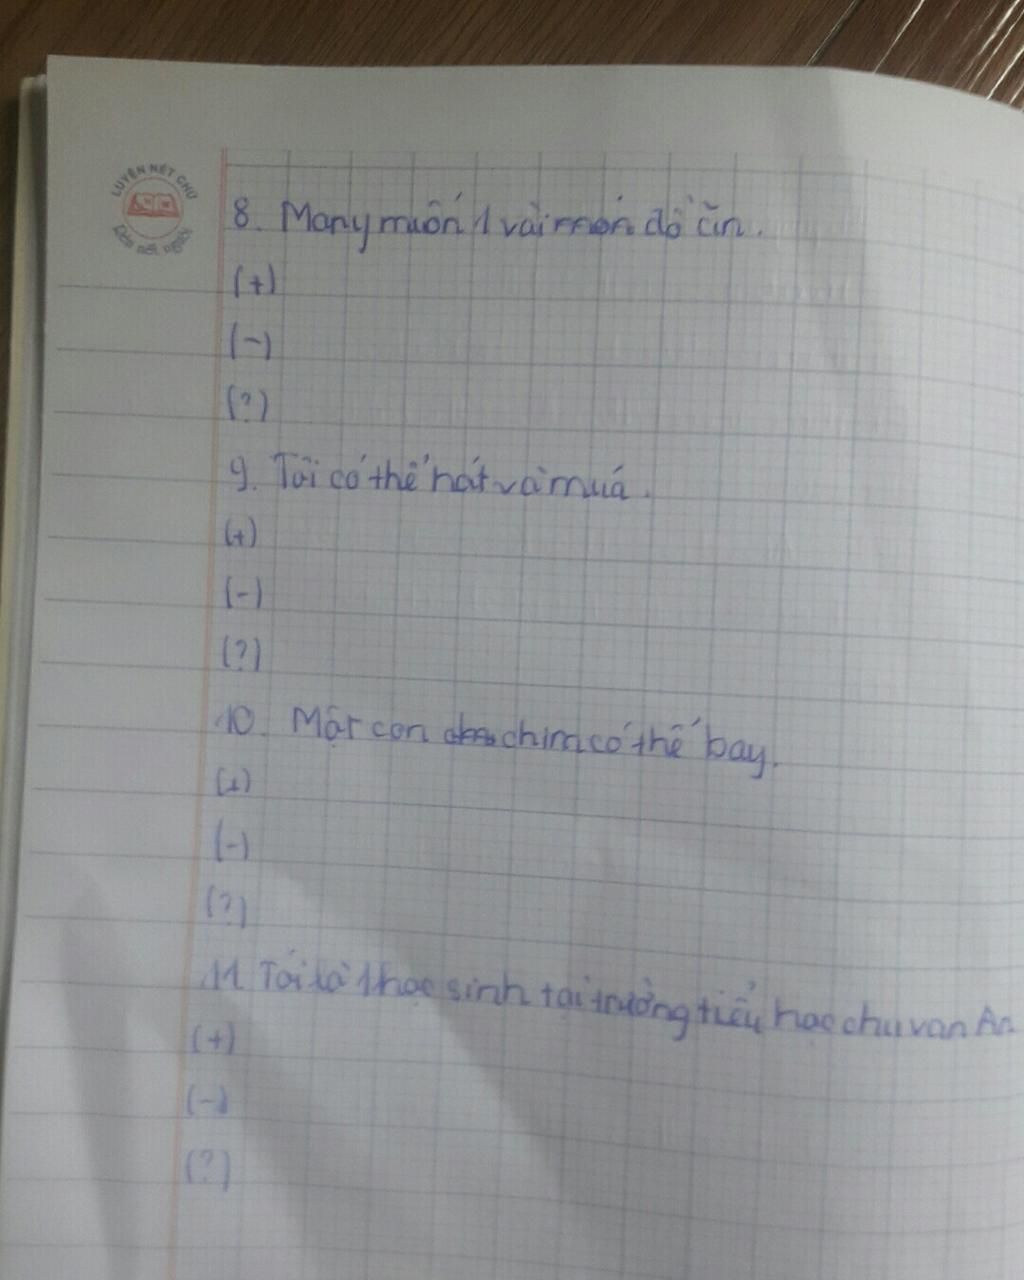 LUYỆN NÉT CHỮ
Rèn nết người
8. Many muốn 1 vài món đồ ăn.
(+)
(-)
(?)
9. Tôi có thể hát và múa.
(+)
(-)
(?)
10. Một con chim có thể bay.
(+)
(-)
(?)
11. Tôi là 1 học sinh tại trường tiểu học chu van An
(+)
(-)
(?)